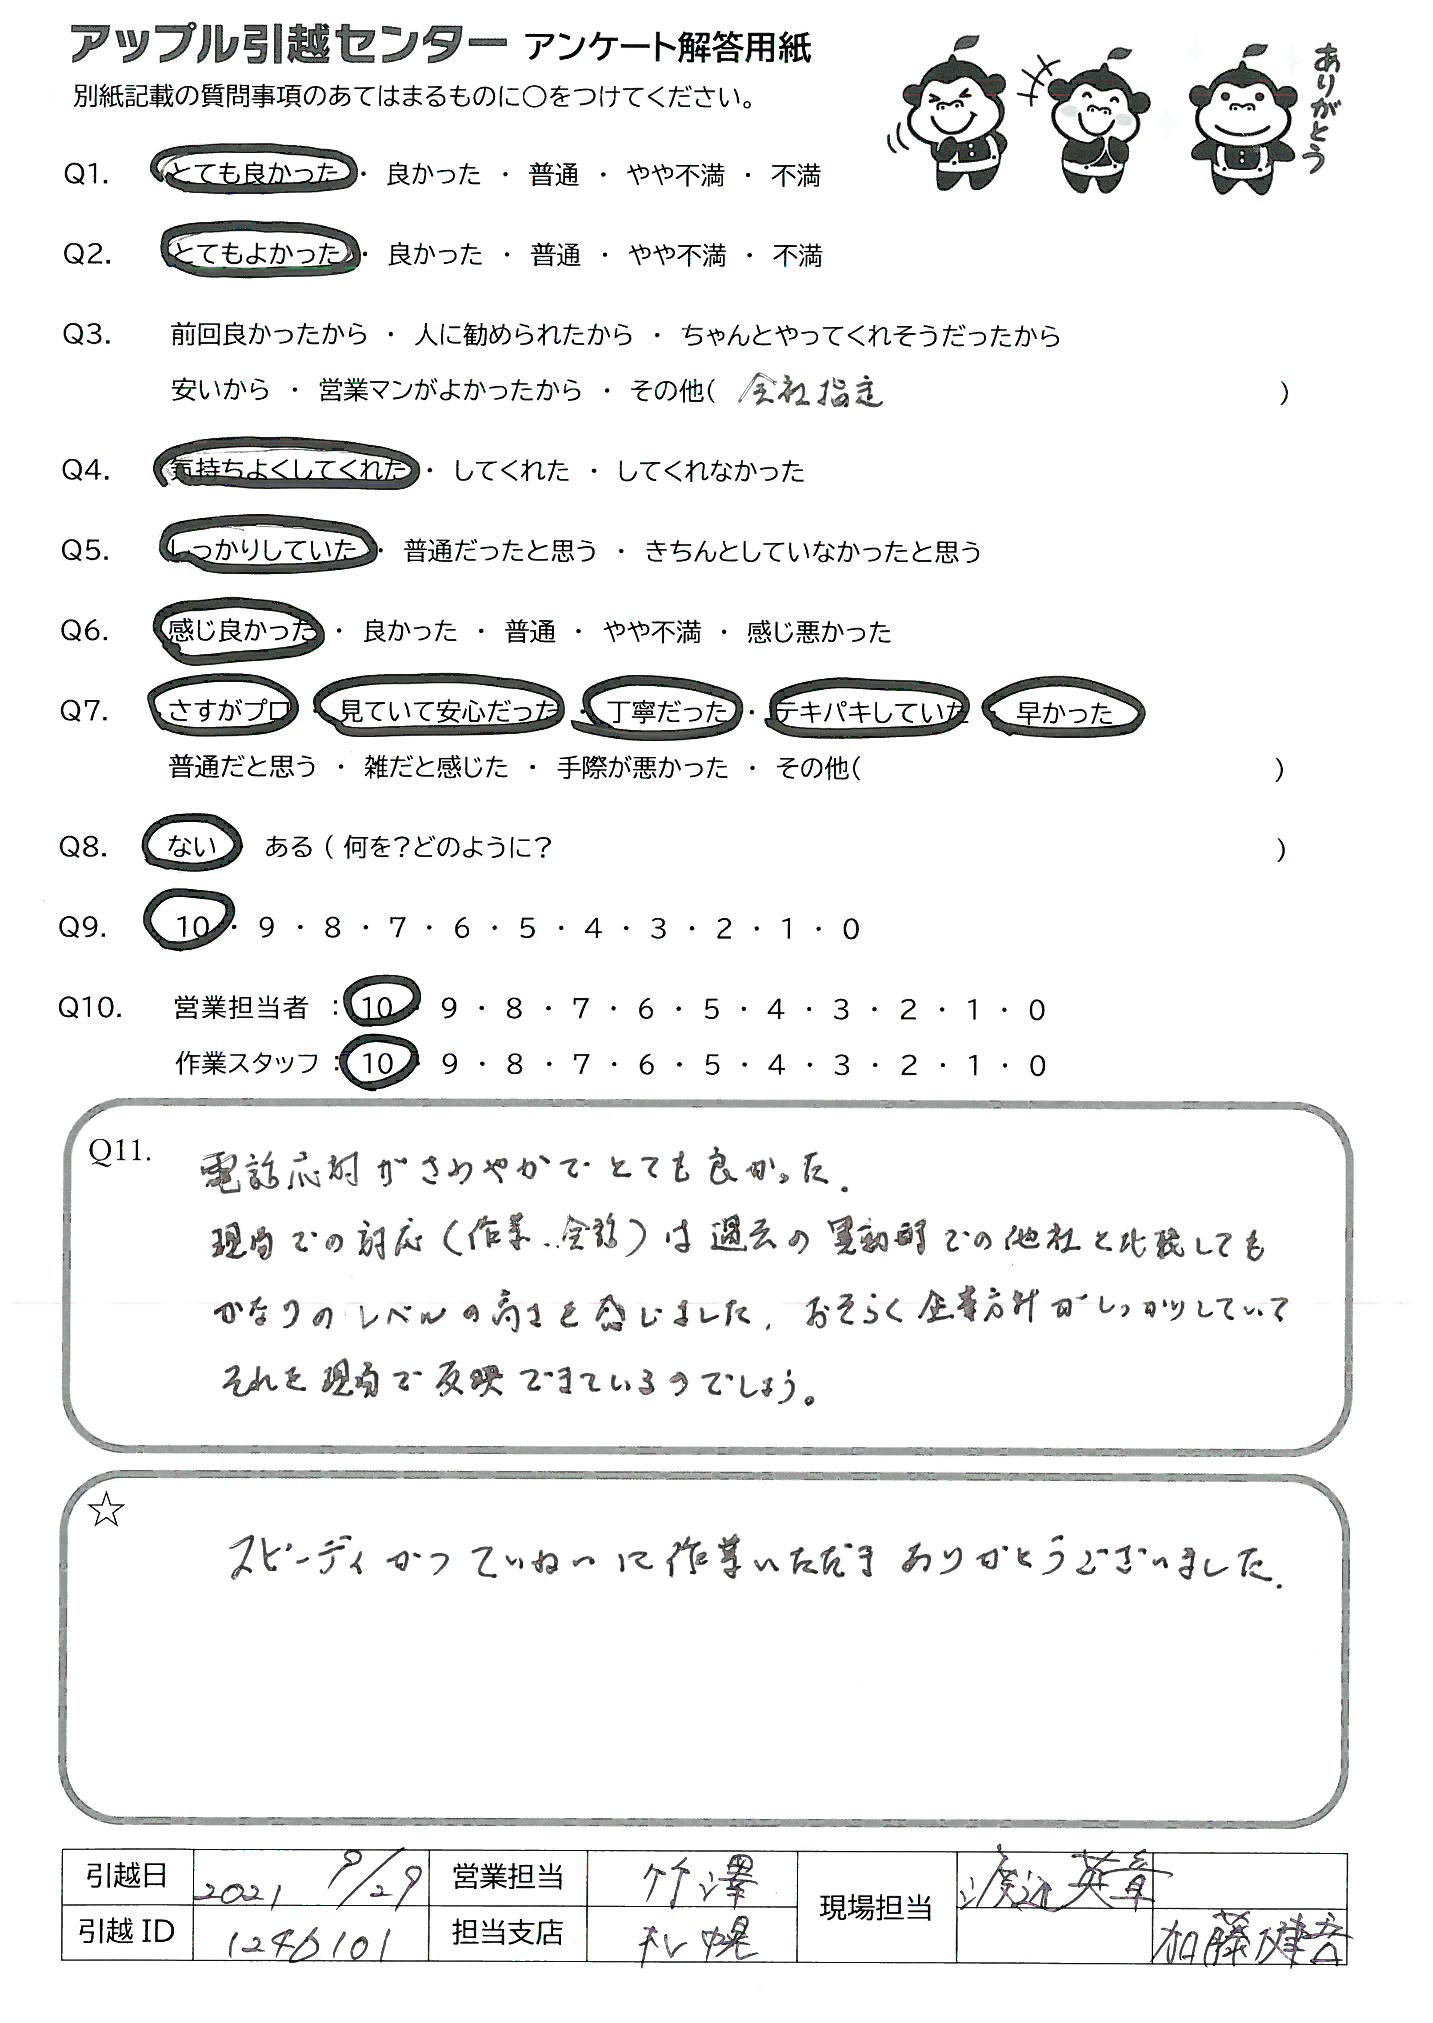 アップル引越センター アンケート解答用紙
別紙記載の質問事項のあてはまるものに○をつけてください。
ありがとう
Q1. とても良かった ・ 良かった ・ 普通 ・ やや不満 ・ 不満
Q2. とてもよかった ・ 良かった ・ 普通 ・ やや不満 ・ 不満
Q3. 前回良かったから ・ 人に勧められたから ・ ちゃんとやってくれそうだったから
安いから ・ 営業マンがよかったから ・ その他( 会社指定 )
Q4. 気持ちよくしてくれた ・ してくれた ・ してくれなかった
Q5. しっかりしていた ・ 普通だったと思う ・ きちんとしていなかったと思う
Q6. 感じ良かった ・ 良かった ・ 普通 ・ やや不満 ・ 感じ悪かった
Q7. さすがプロ ・ 見ていて安心だった ・ 丁寧だった ・ テキパキしていた 早かった
普通だと思う ・ 雑だと感じた ・ 手際が悪かった ・ その他( )
Q8. ない ある ( 何を?どのように? )
Q9. 10 ・ 9 ・ 8 ・ 7 ・ 6 ・ 5 ・ 4 ・ 3 ・ 2 ・ 1 ・ 0
Q10. 営業担当者 : 10 ・ 9 ・ 8 ・ 7 ・ 6 ・ 5 ・ 4 ・ 3 ・ 2 ・ 1 ・ 0
作業スタッフ : 10 ・ 9 ・ 8 ・ 7 ・ 6 ・ 5 ・ 4 ・ 3 ・ 2 ・ 1 ・ 0
Q11. 電話応対がさわやかでとても良かった.
現場での対応(作業、会話)は過去の異動時での他社と比較しても
かなりのレベルの高さを感じました. おそらく企業方針がしっかりしていて
それを現場で反映できているのでしょう。
☆
スピーディかつていねいに作業いただきありがとうございました.
引越日 2021 9/29 営業担当 竹澤 現場担当 渡辺 英章
引越ID 1246101 担当支店 札幌 加藤健吾